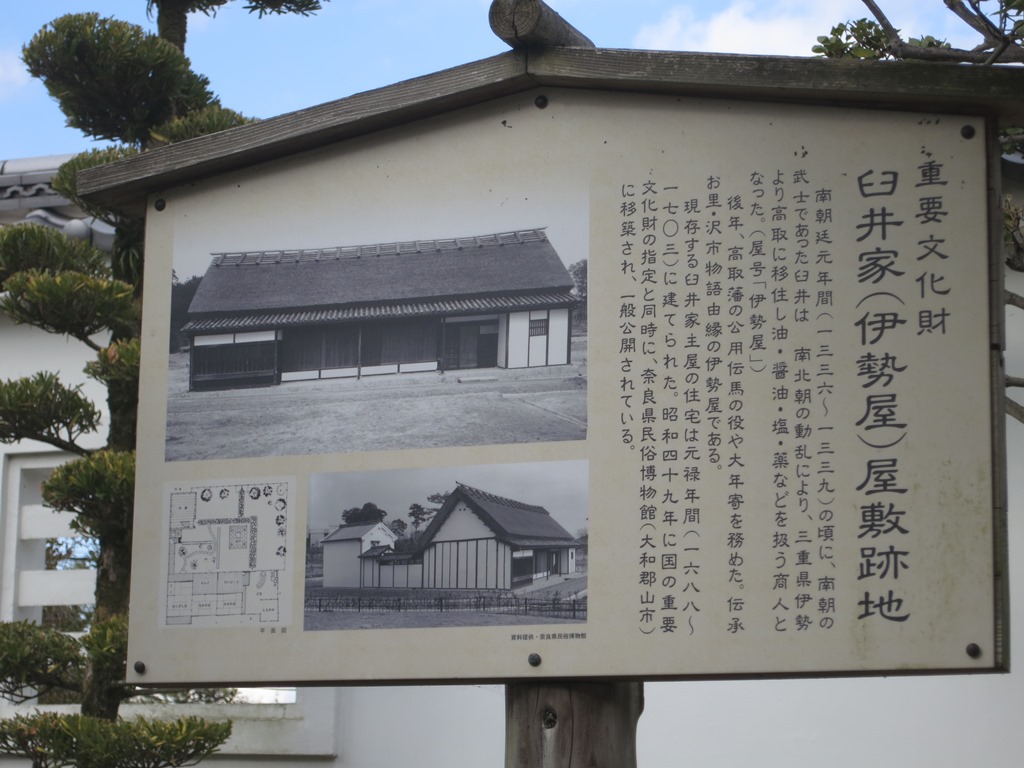 重要文化財
臼井家(伊勢屋)屋敷跡地
南朝廷元年間(一三三六〜一三三九)の頃に、南朝の
武士であった臼井は 南北朝の動乱により、三重県伊勢
より高取に移住し油・醤油・塩・薬などを扱う商人と
なった。(屋号「伊勢屋」)
後年、高取藩の公用伝馬の役や大年寄を務めた。伝承
お里・沢市物語由縁の伊勢屋である。
現存する臼井家主屋の住宅は元禄年間(一六八八〜
一七〇三)に建てられた。昭和四十九年に国の重要
文化財の指定と同時に、奈良県民俗博物館(大和郡山市)
に移築され、一般公開されている。
平面図
資料提供・奈良県民俗博物館